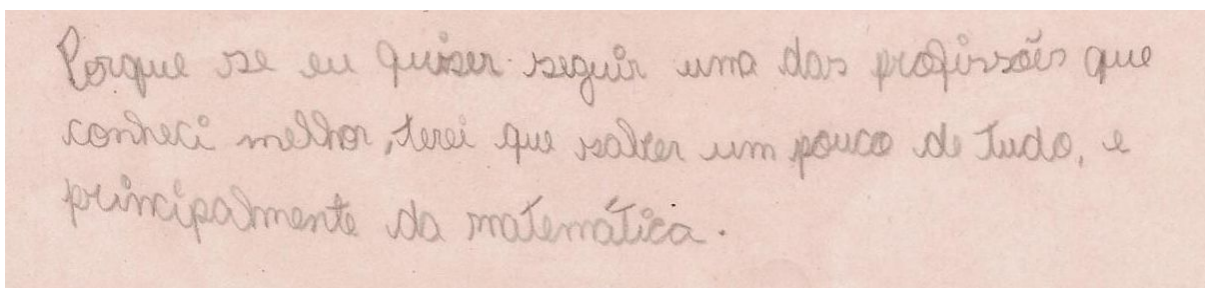 Porque se eu quiser seguir uma das profissões que
conheci melhor, terei que saber um pouco de tudo, e
principalmente da matemática.